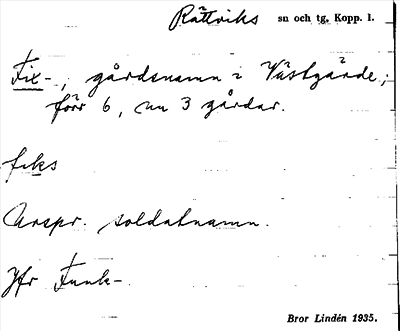 Rättviks sn och tg. Kopp. l.
Fix-, gårdsnamn i Västgärde;
förr 6, nu 3 gårdar.
fiks
Urspr. soldatnamn.
Jfr Funk-
Bror Lindén 1935.